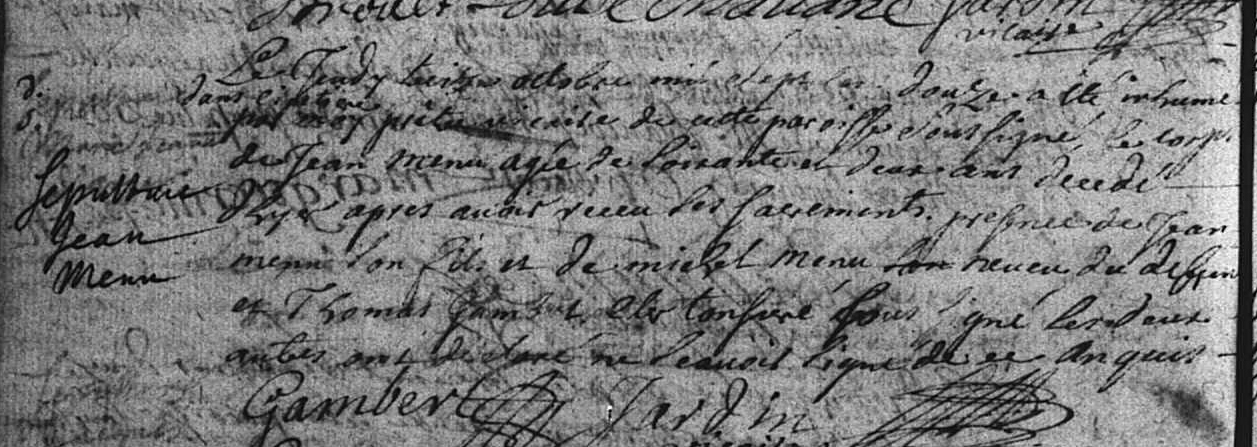 vicaire
Le Jeudy treize octobre mil sept cen douze a été inhumé
dans le cimetiere
par moy prêtre vicaire de cette paroisse soussigné, le corps
de Jean menu agé de soixante et deux ans decedé
d'hyer apres avoir receu les sacrements. presence de Jean
menu son fils et de michel menu neveu du deffun
et Thomas Gambert clerc tonsuré sous signé les deux
autres ont declaré ne scavoir signé de ce enquis
Gambert Jardin
Sepulture
Jean
Menu